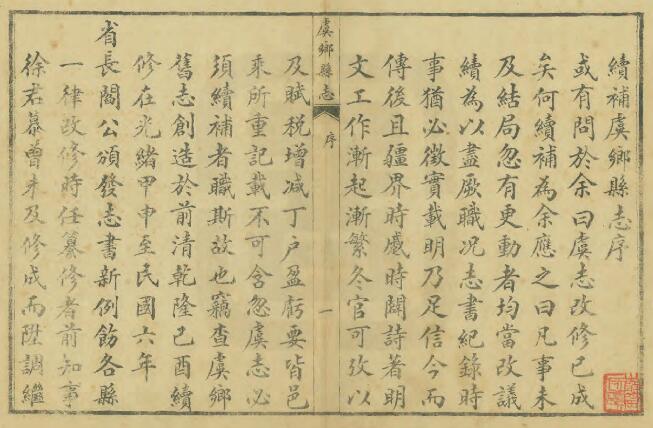 續補虞鄉縣志序
或有問於余曰虞志改修已成
矣何續補為余應之曰凡事未
及結局忽有更動者均當改議
續為以盡厥職况志書紀錄時
事猶必徵實載明乃足信今而
傳後且疆界時蹙時闢詩著明
文工作漸起漸繁冬官可攷以
虞鄉縣志
序
一
及賦稅增減丁戶盈虧要皆邑
乘所重記載不可含忽虞志必
須續補者職斯故也竊查虞鄉
舊志創造於前清乾隆己酉續
修在光緒甲申至民國六年
省長閻公頒發志書新例飭各縣
一律改修時任纂修者前知事
徐君慕曾未及修成而陞調繼